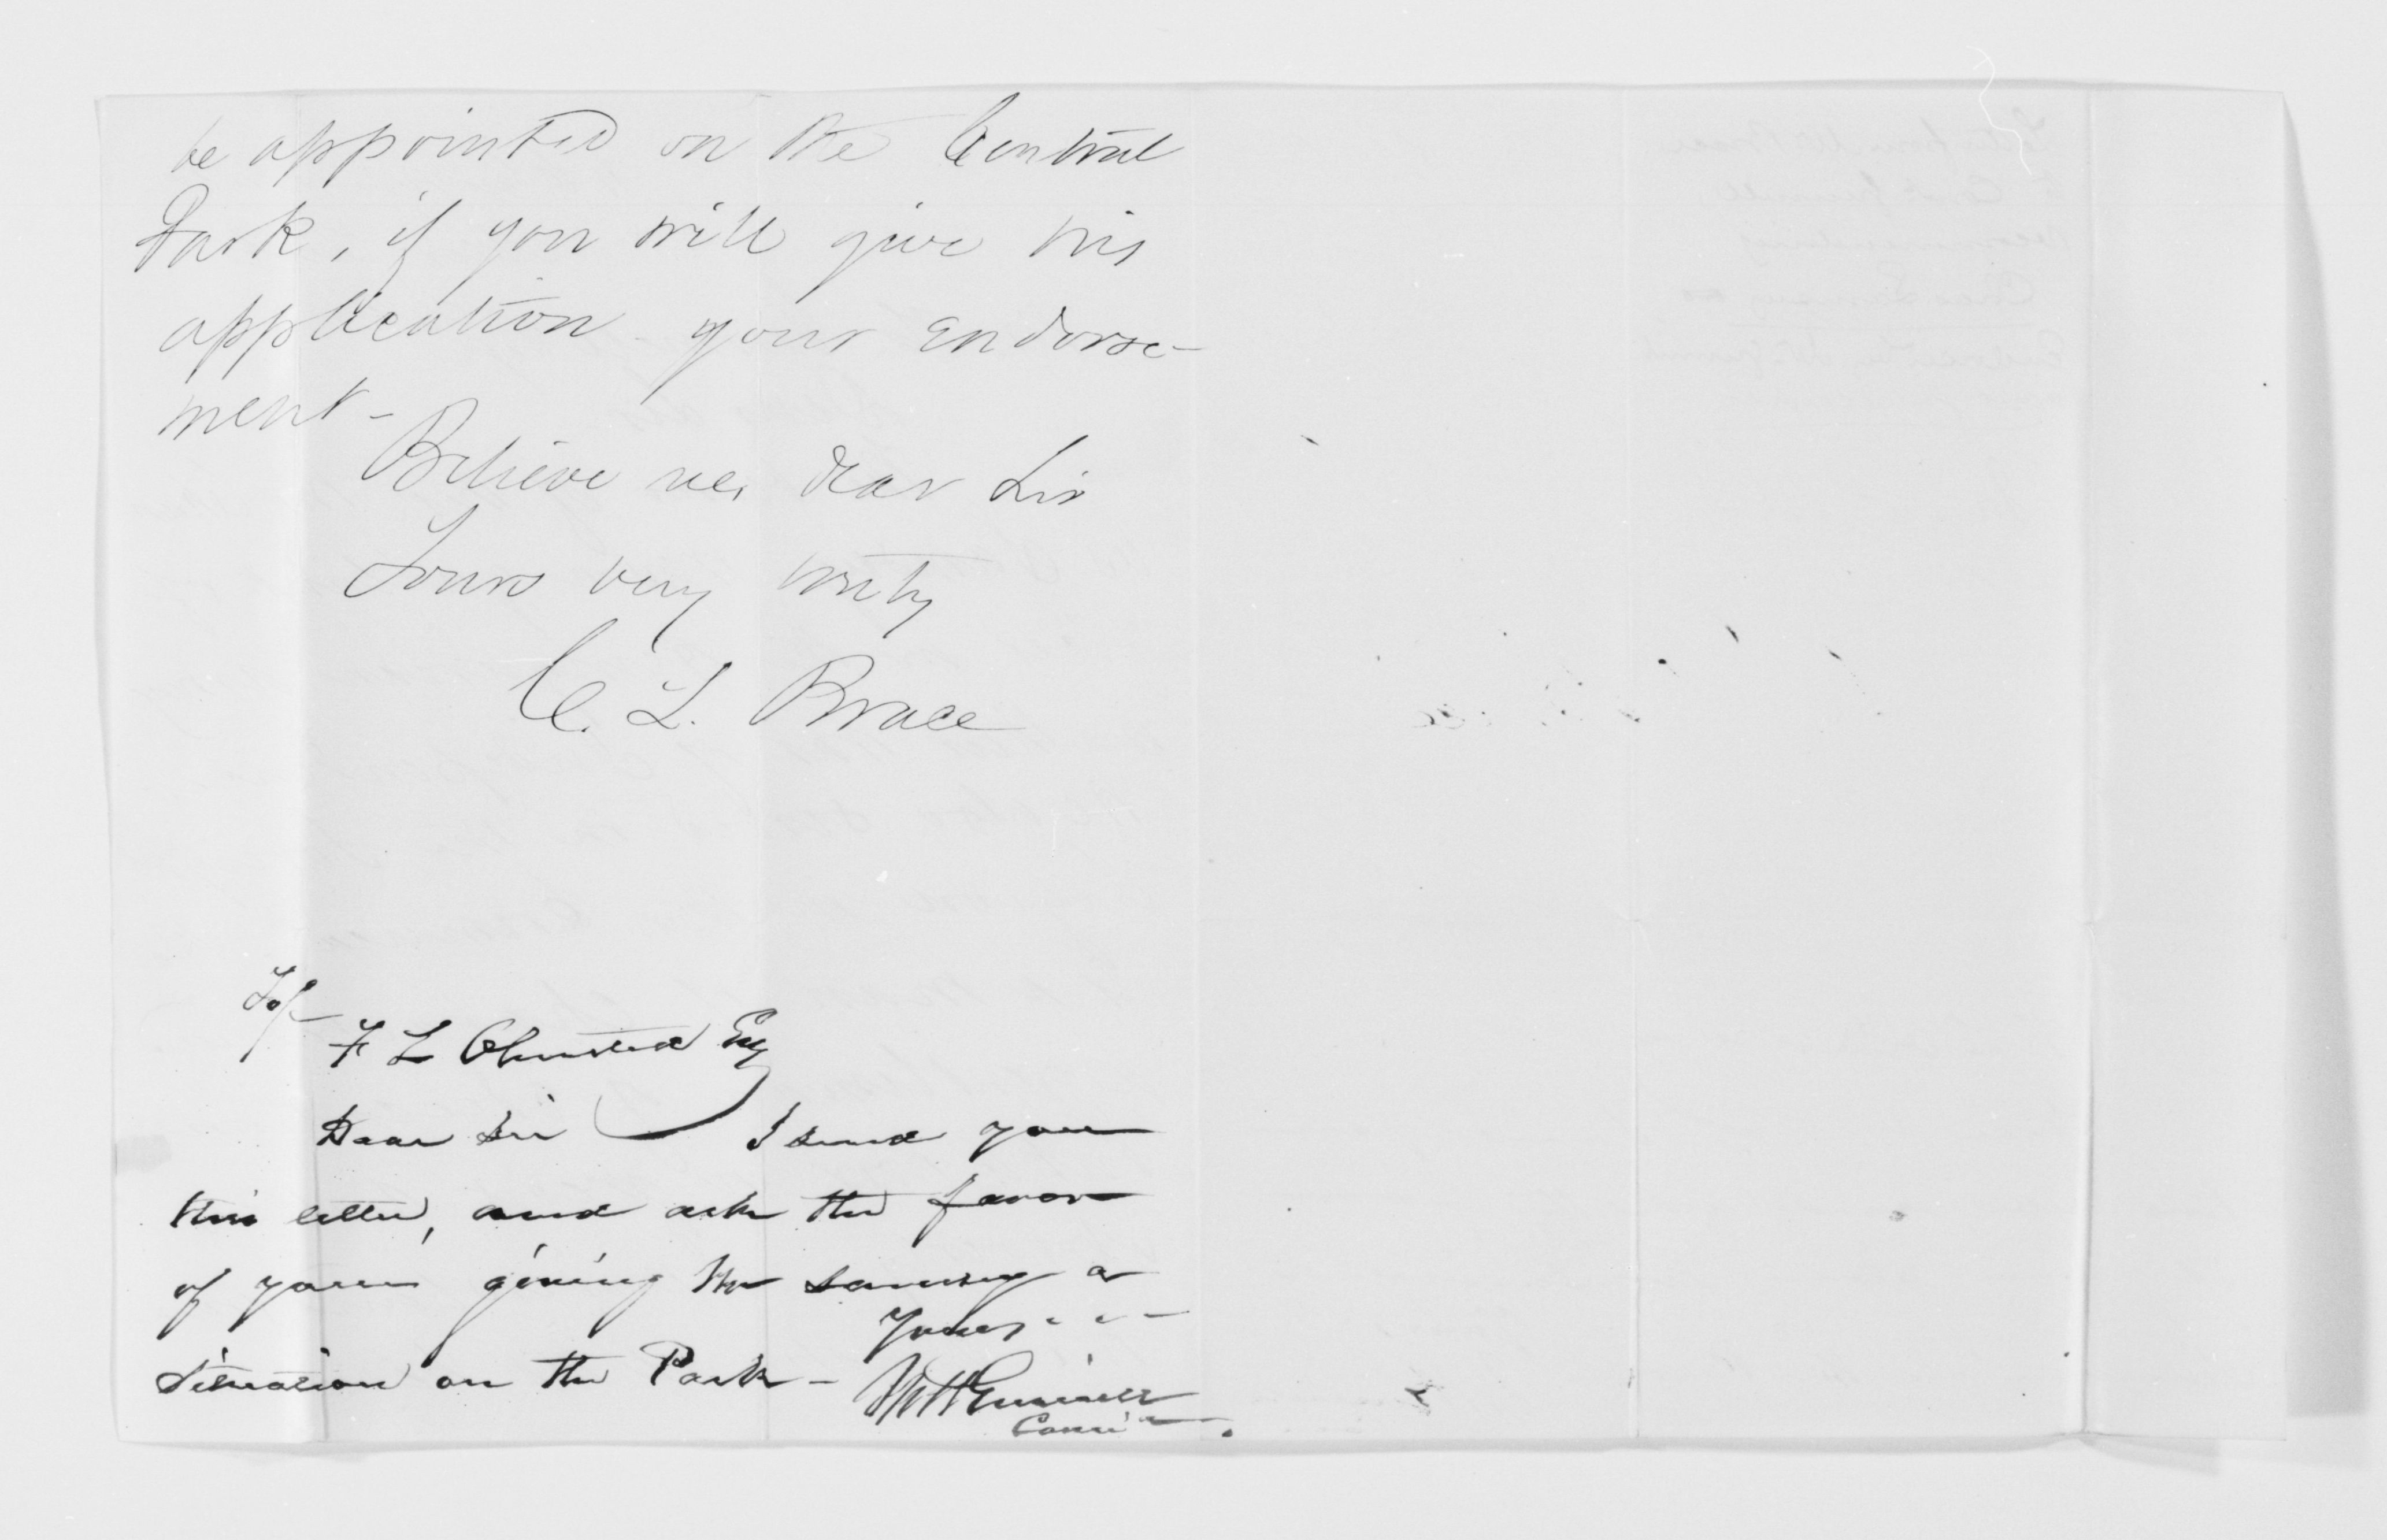 be appointed on the Central
Park, if you will give his
application your endorse-
ment-
Believe me, dear Sir
Yours very truly
C. L. Brace
To/
F L Olmsted Esq
Dear Sir I send you
this letter, and ask the favor
of your giving the
situation on the Park -
Yours " " -
M H Grinnell